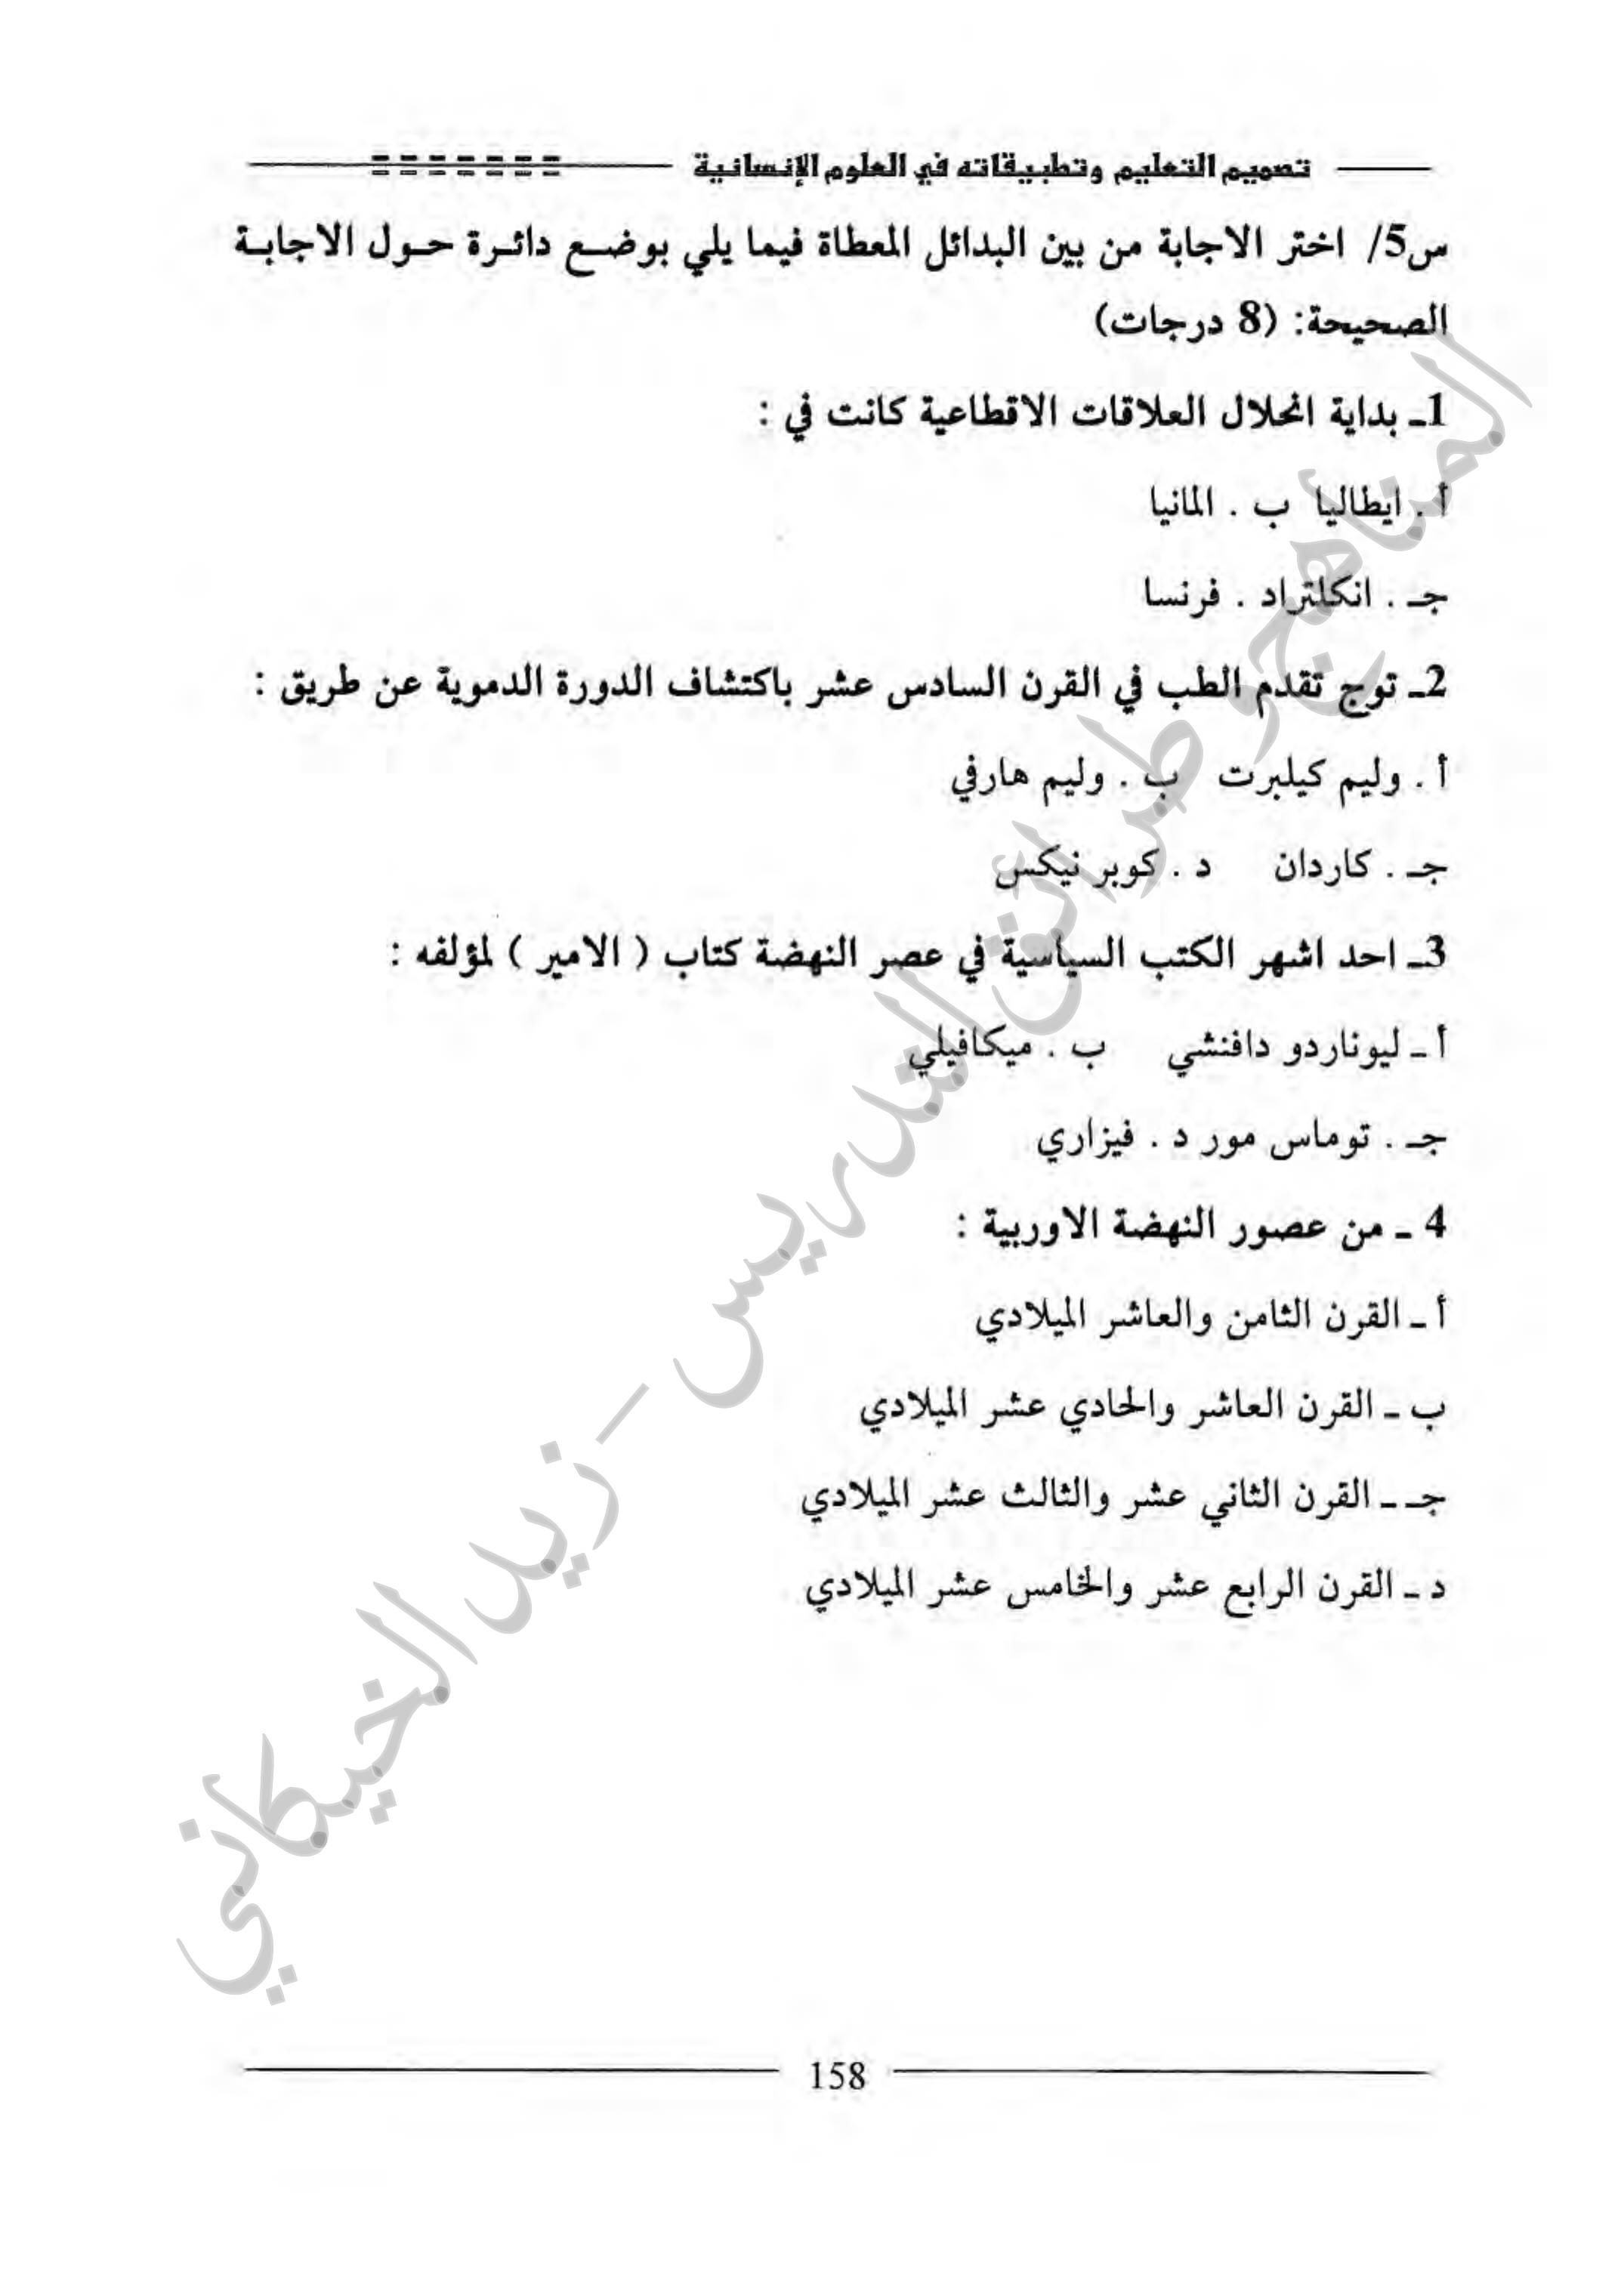 تصميم التعليم وتطبيقاته في العلوم الإنسانية
س5/ اختر الاجابة من بين البدائل المعطاة فيما يلي بوضع دائرة حول الاجابة
الصحيحة: (8 درجات)
1ـ بداية انحلال العلاقات الاقطاعية كانت في :
أ . ايطاليا ب . المانيا
جـ . انكلتراد . فرنسا
2ـ توج تقدم الطب في القرن السادس عشر باكتشاف الدورة الدموية عن طريق :
أ . وليم كيلبرت ب . وليم هارفي
جـ . كاردان د . كوبر نيكس
3ـ احد اشهر الكتب السياسية في عصر النهضة كتاب ( الامير ) لمؤلفه :
أ ـ ليوناردو دافنشي ب . ميكافيلي
جـ . توماس مور د . فيزاري
4 ـ من عصور النهضة الاوربية :
أ ـ القرن الثامن والعاشر الميلادي
ب ـ القرن العاشر والحادي عشر الميلادي
جـ ـ القرن الثاني عشر والثالث عشر الميلادي
د ـ القرن الرابع عشر والخامس عشر الميلادي
المناهج وطرائق التدريس – زيد الخيكاني
158